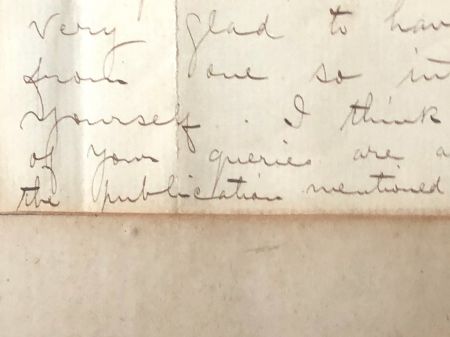 Very glad to hav
from one so in
yourself. I think
of your queries are a
the publication mentioned